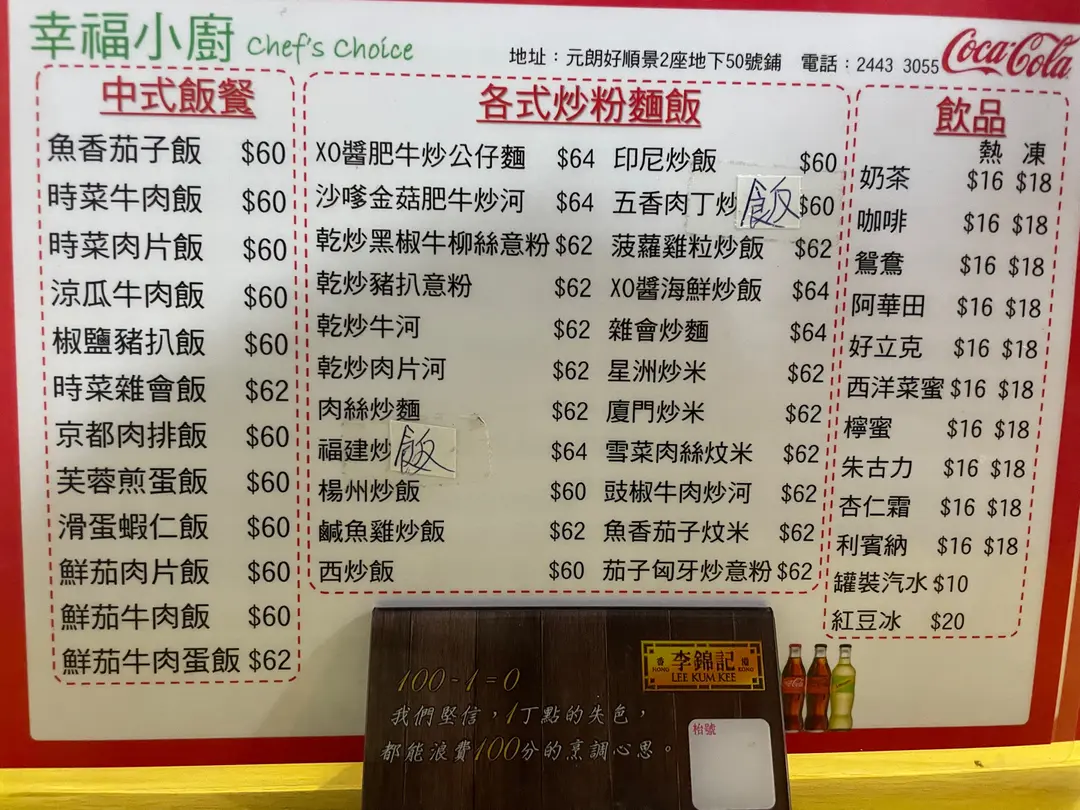 幸福小廚 Chef's Choice
地址：元朗好順景2座地下50號鋪 電話：2443 3055
Coca-Cola
中式飯餐
魚香茄子飯 $60
時菜牛肉飯 $60
時菜肉片飯 $60
涼瓜牛肉飯 $60
椒鹽豬扒飯 $60
時菜雜會飯 $62
京都肉排飯 $60
芙蓉煎蛋飯 $60
滑蛋蝦仁飯 $60
鮮茄肉片飯 $60
鮮茄牛肉飯 $60
鮮茄牛肉蛋飯 $62
各式炒粉麵飯
XO醬肥牛炒公仔麵 $64
沙嗲金菇肥牛炒河 $64
乾炒黑椒牛柳絲意粉 $62
乾炒豬扒意粉 $62
乾炒牛河 $62
乾炒肉片河 $62
肉絲炒麵 $62
福建炒飯 $64
楊州炒飯 $60
鹹魚雞炒飯 $62
西炒飯 $60
印尼炒飯 $60
五香肉丁炒飯 $60
菠蘿雞粒炒飯 $62
XO醬海鮮炒飯 $64
雜會炒麵 $64
星洲炒米 $62
廈門炒米 $62
雪菜肉絲炆米 $62
豉椒牛肉炒河 $62
魚香茄子炆米 $62
茄子匈牙炒意粉 $62
飲品
熱 凍
奶茶 $16 $18
咖啡 $16 $18
鴛鴦 $16 $18
阿華田 $16 $18
好立克 $16 $18
西洋菜蜜 $16 $18
檸蜜 $16 $18
朱古力 $16 $18
杏仁霜 $16 $18
利賓納 $16 $18
罐裝汽水 $10
紅豆冰 $20
香 李錦記 港
HONG LEE KUM KEE KONG
100-1=0
我們堅信，1丁點的失色，
都能浪費100分的烹調心思。
枱號